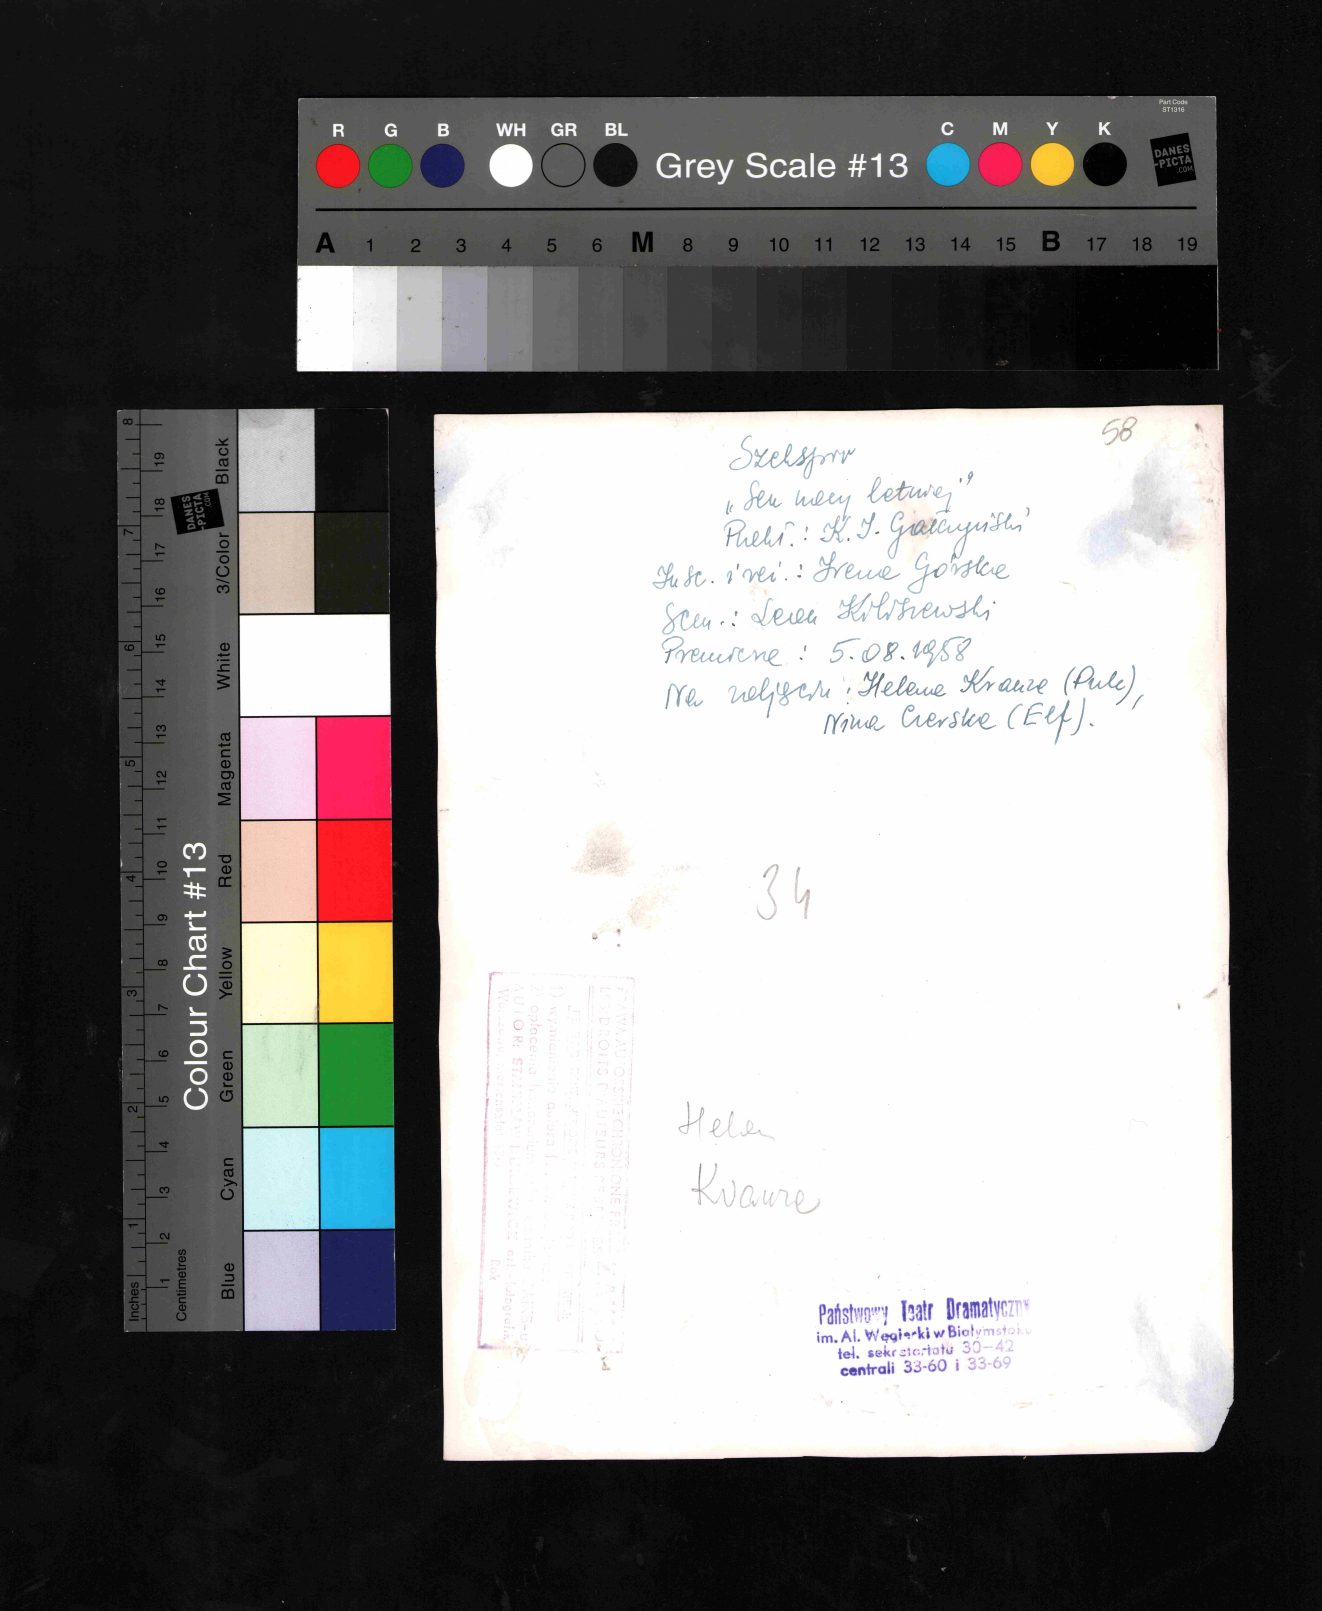 Part Code
ST1316
R G B WH GR BL
Grey Scale #13
C M Y K
DANES
-PICTA
.COM
A 1 2 3 4 5 6 M 8 9 10 11 12 13 14 15 B 17 18 19
Colour Chart #13
DANES
-PICTA
.COM
Black
3/Color
White
Magenta
Red
Yellow
Green
Cyan
Blue
8 7 6 5 4 3 2 1 Inches
19 18 17 16 15 14 13 12 11 10 9 8 7 6 5 4 3 2 1 Centimetres
58
Szekspir
„Sen nocy letniej"
Przekł.: K. I. Gałczyński
Insc. i reż.: Irena Górska
Scen.: Leon Kiliszewski
Premiera: 5.08.1958
Na zdjęciu: Helena Krauze (Puk),
Nina Czerska (Elf).
34
PRAWA AUTORSKIE CHRONIONE
DROITS D'AUTEURS
wymienienia autora
AUTOR:
Rok
Helen
Krauze
Państwowy Teatr Dramatyczny
im. Al. Węgierki w Białymstoku
tel. sekretariatu 30-42
centrali 33-60 i 33-69